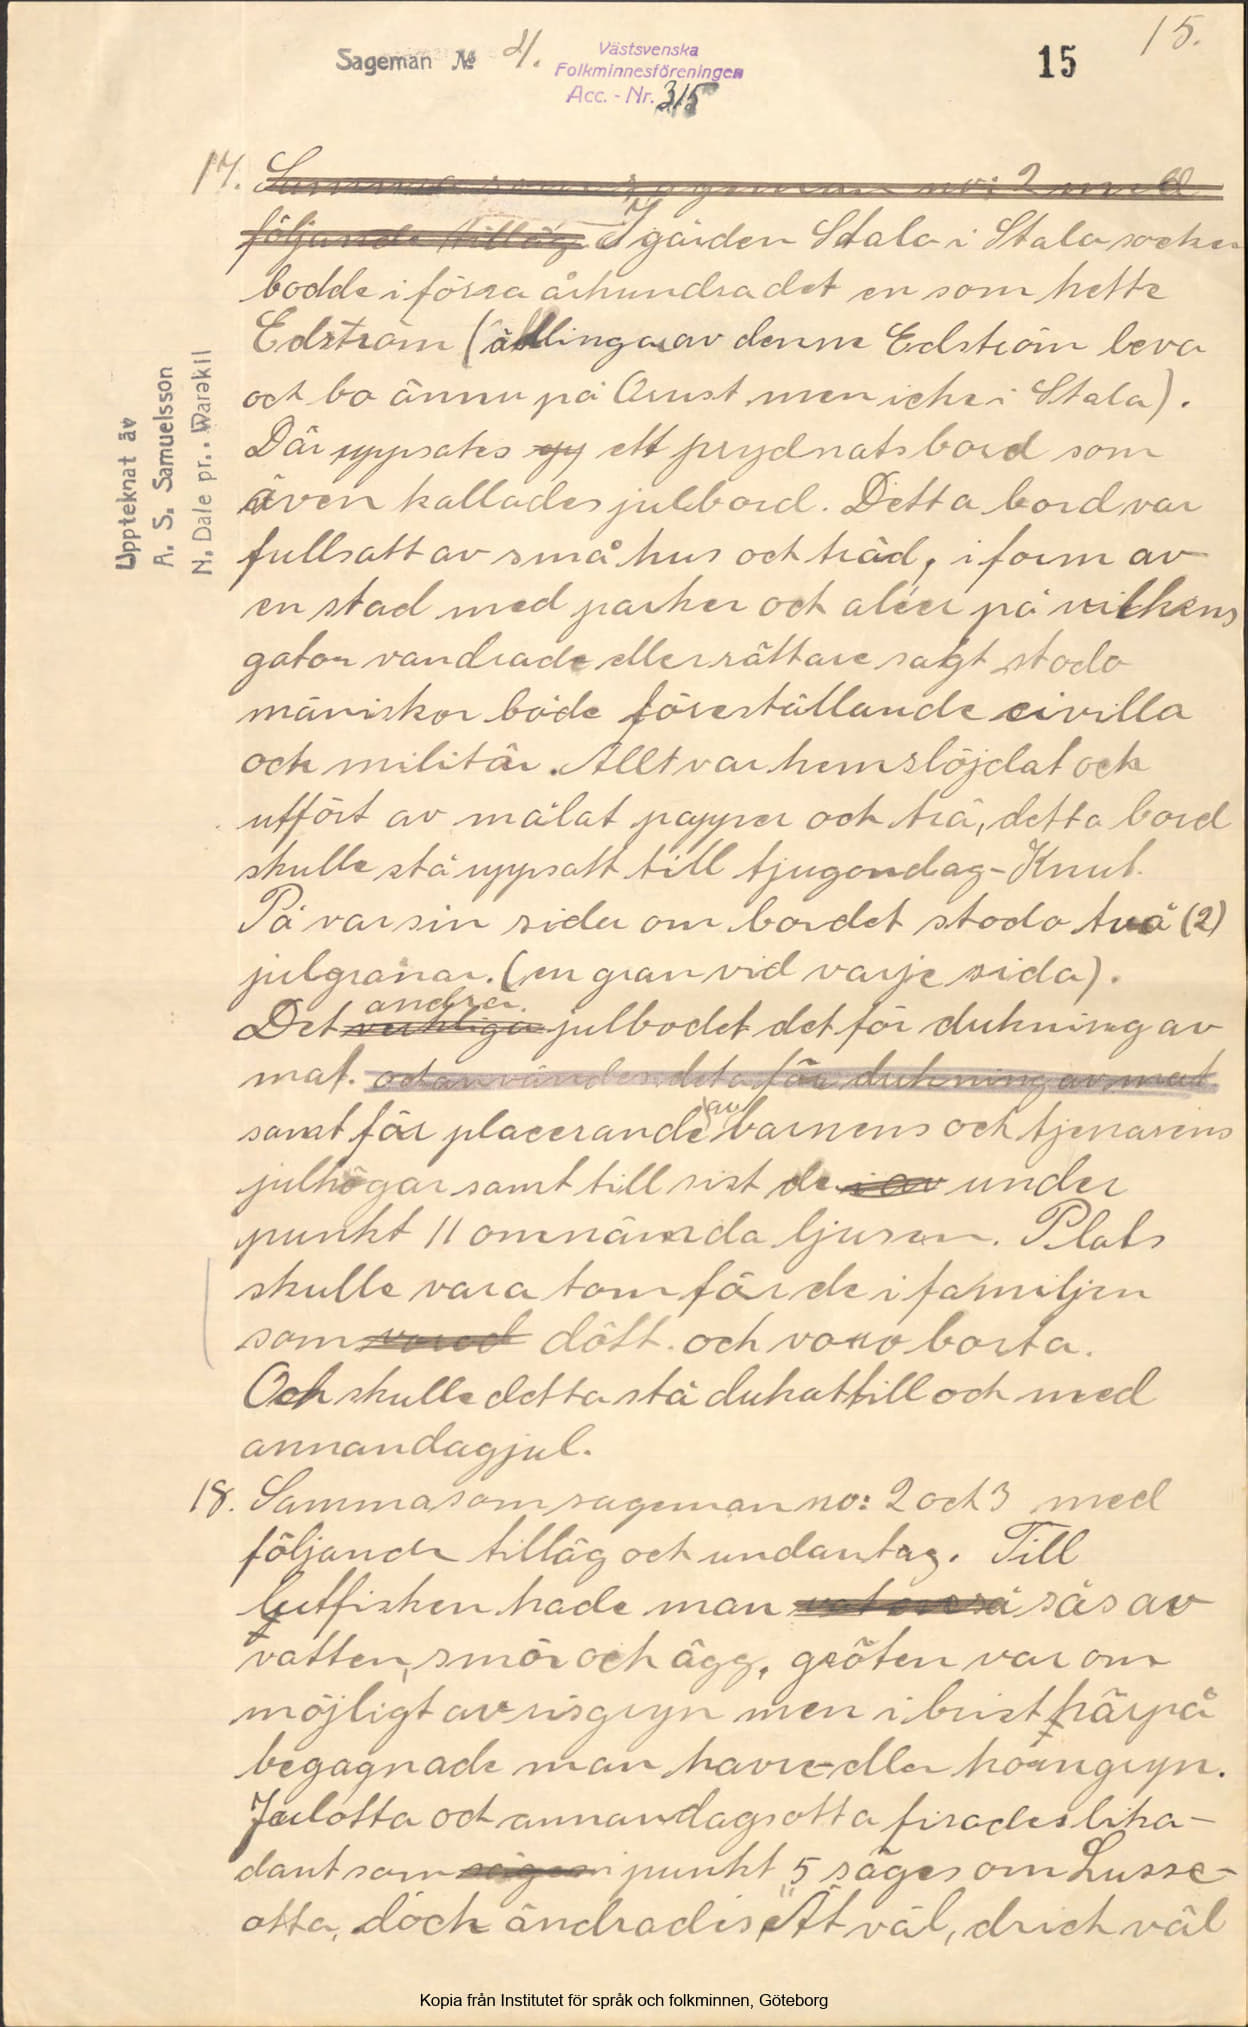 15.
Sageman № 4.
Västsvenska
Folkminnesföreningen
Acc. - Nr. 315
15
17. Samma som sageman no: 2 med
följande tilläg I gården Stala i Stala socken
bodde i förra århundradet en som hette
Edström (ättlingar av denne Edström leva
och bo ännu på Orust men icke i Stala).
Där uppsates ett prydnatsbord som
även kallades julbord. Detta bord var
fullsatt av små hus och träd, i form av
en stad med parker och aléer på vilkens
gator vandrade eller rättare sagt stodo
mäniskor både föreställande civilla
och militär. Allt var hemslöjdat och
utfört av målat papper och trä, detta bord
skulle stå uppsatt till tjugondag-Knut.
På varsin sida om bordet stodo två (2)
julgranar. (en gran vid varje sida).
andra.
Det verkliga julbodet det för dukning av
mat. och användes deta för dukning av mat
samt för placerande av barnens och tjenarens
julhögar samt till sist de under
punkt 11 omnämda ljusen. Plats
skulle vara tom för de i familjen
som dött och voro borta.
Och skulle detta stå dukat till och med
annandagjul.
18. Samma som sageman no: 2 och 3 med
följande tilläg och undantag. Till
lutfisken hade man sås av
vatten, smör och ägg, gröten var om
möjligt av risgryn men i brist härpå
begagnade man havre-eller korngryn.
Julotta och annandagsotta firades lika-
dant som i punkt 5 säges om Lusse-
otta, doch ändrades "Ät väl, drick väl
Uppteknat av
A. S. Samuelsson
N. Dale pr. Varekil
Kopia från Institutet för språk och folkminnen, Göteborg